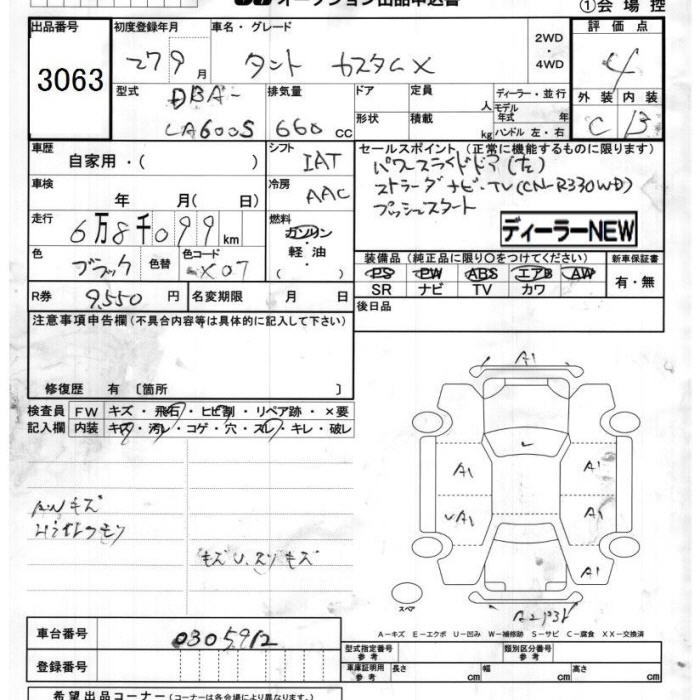 オークション出品申込書
①会場控
出品番号 初度登録年月 車名・グレード 評価点
3063 27 9月 タント カスタムX 2WD・4WD 4
型式 排気量 ドア 定員 人 ディーラー・並行 外装 内装
DBA-LA600S 660cc 形状 積載 kg モデル年式 年 ハンドル 左・右 C B
車歴 自家用・( ) シフト IAT セールスポイント(正常に機能するものに限ります)
パワースライドドア(左)
車検 年 月(日) 冷房 AAC ストラーダナビ・TV(CN-R330WD)
プッシュスタート
走行 6万8千099km 燃料 ガソリン・軽油・( ) ディーラーNEW
色 ブラック 色替 色コード X07 装備品(純正品に限り○をつけてください) 新車保証書
PS PW ABS エアB AW 有・無
SR ナビ TV カワ
R券 9,550円 名変期限 月 日 後日品
注意事項申告欄(不具合内容等は具体的に記入して下さい)
修復歴 有〔箇所 〕
検査員記入欄 FW キズ・飛石・ヒビ割・リペア跡・×要
内装 キズ・汚レ・コゲ・穴・スレ・キレ・破レ
A1
A1 A1
UA1 A1
A1
AWキズ
キズU.スリキズ
スペア
A-キズ E-エクボ U-凹み W-補修跡 S-サビ C-腐食 XX-交換済
車台番号 0305912
登録番号
型式指定番号 参考 類別区分番号 参考
車庫証明用 参考 長さ cm 幅 cm 高さ cm
希望出品コーナー(コーナーは各会場により異なります)